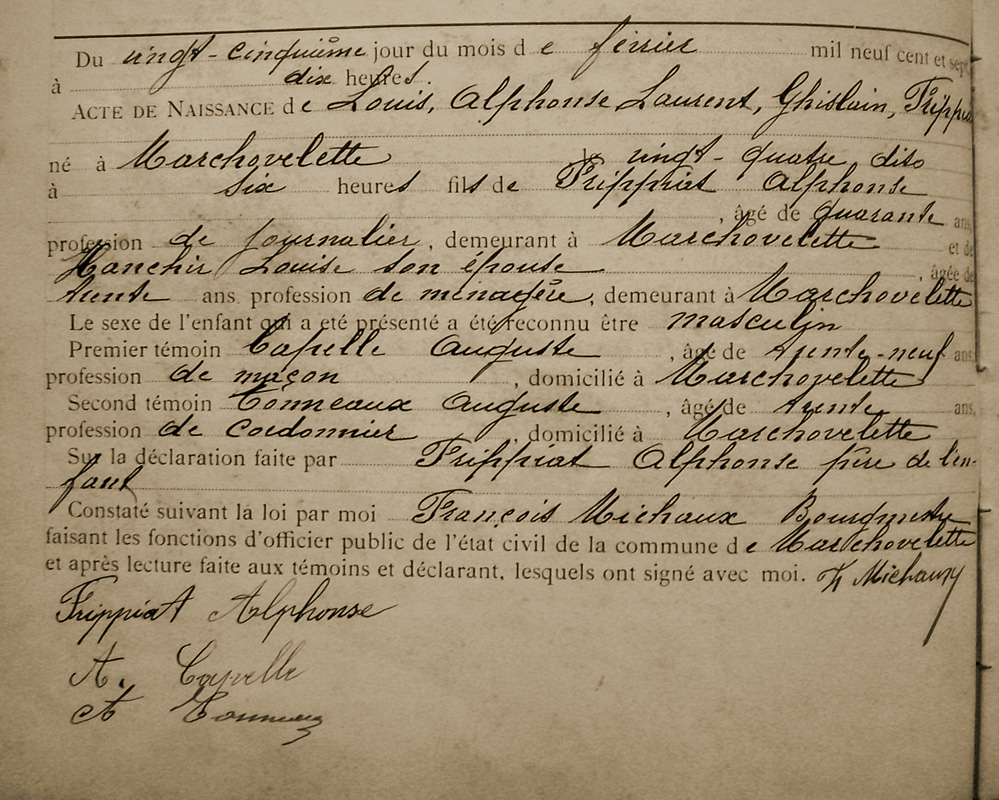 Du vingt-cinquième jour du mois de février mil neuf cent et sept,
à dix heures.
ACTE DE NAISSANCE de Louis, Alphonse Laurent, Ghislain, Frippiat
né à Marchovelette le vingt-quatre dito
à six heures fils de Frippiat Alphonse
, âgé de quarante ans
profession de journalier, demeurant à Marchovelette et de
Hanchir Louise son épouse , âgée de
trente ans, profession de ménagère, demeurant à Marchovelette
Le sexe de l'enfant qui a eté présenté a été reconnu être masculin
Premier témoin Capelle Auguste , âgé de trente-neuf ans
profession de maçon , domicilié à Marchovelette
Second témoin Tonneaux Auguste , âgé de trente ans,
profession de cordonnier , domicilié à Marchovelette
Sur la déclaration faite par Frippiat Alphonse père de l'en-
fant
Constaté suivant la loi par moi François Michaux Bourgmestre
faisant les fonctions d'officier public de l'état civil de la commune de Marchovelette
et après lecture faite aux témoins et déclarant, lesquels ont signé avec moi. Fr Michaux
Frippiat Alphonse
A. Capelle
A Tonneaux